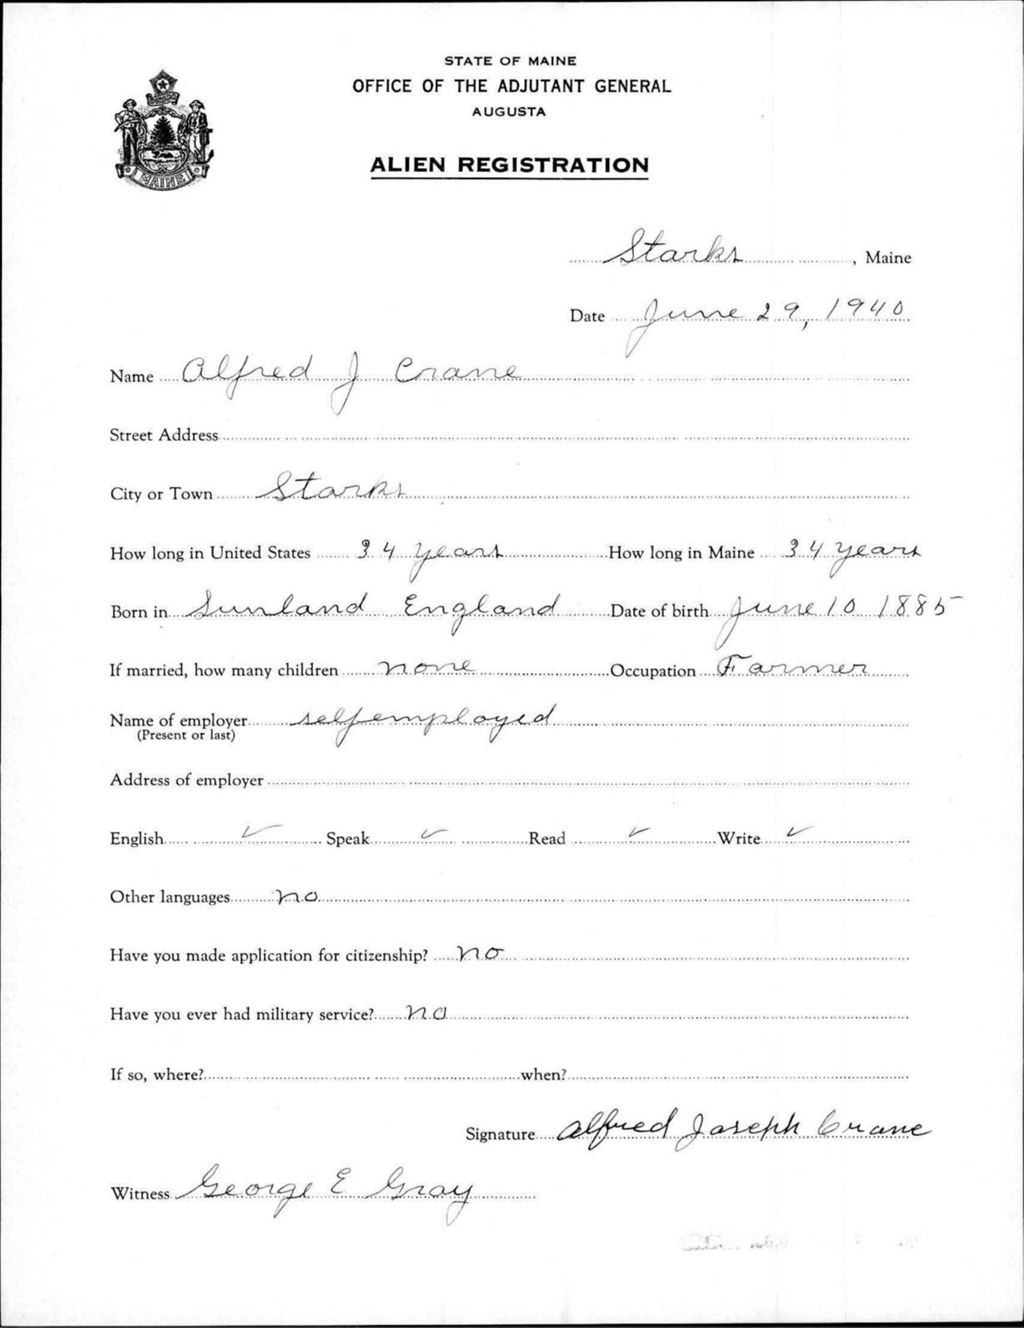 STATE OF MAINE
OFFICE OF THE ADJUTANT GENERAL
AUGUSTA
MAINE
ALIEN REGISTRATION
Starks, Maine
Date June 29, 1940
Name Alfred J Crane
Street Address
City or Town Starks
How long in United States 34 years How long in Maine 34 years
Born in Sunland England Date of birth June 10 1885
If married, how many children none Occupation Farmer
Name of employer self employed
(Present or last)
Address of employer
English ✓ Speak ✓ Read ✓ Write ✓
Other languages no
Have you made application for citizenship? no
Have you ever had military service? no
If so, where? when?
Signature Alfred Joseph Crane
Witness George E Gray